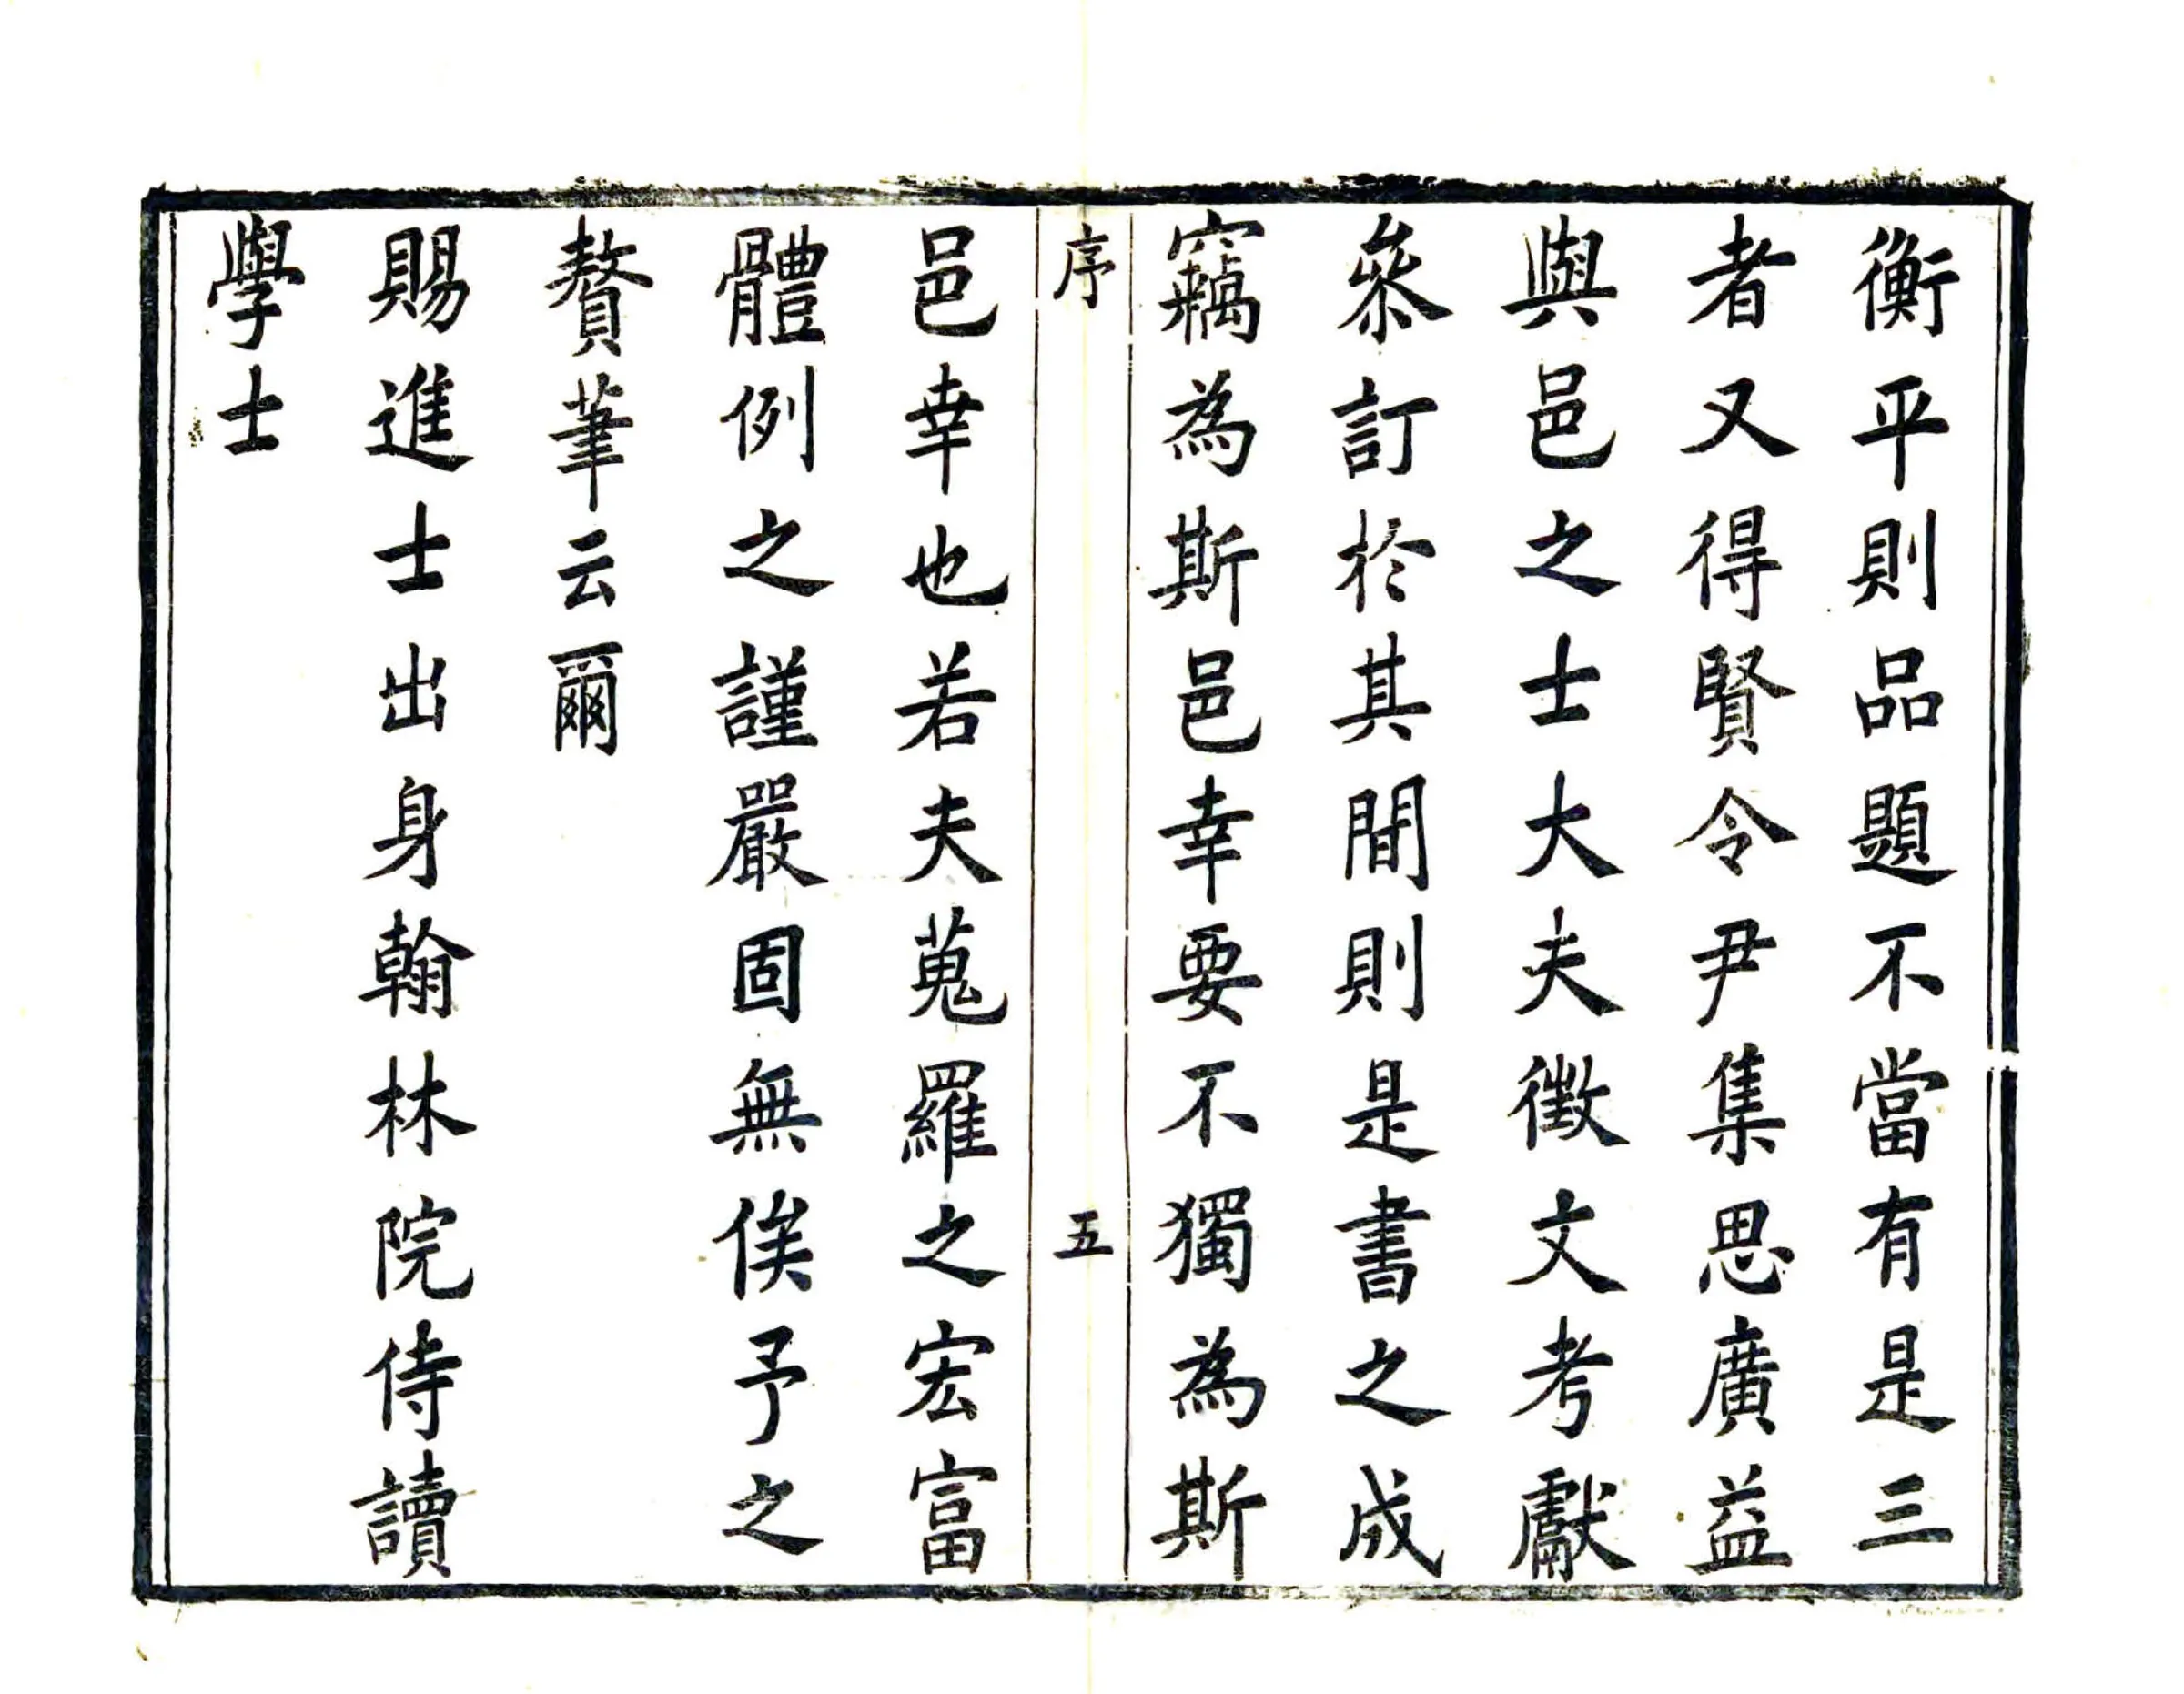 衡平則品題不當有是三
者又得賢令尹集思廣益
與邑之士大夫徵文考獻
叅訂於其間則是書之成
竊為斯邑幸要不獨為斯
序 五
邑幸也若夫蒐羅之宏富
體例之謹嚴固無俟予之
贅筆云爾
賜進士出身翰林院侍讀
學士